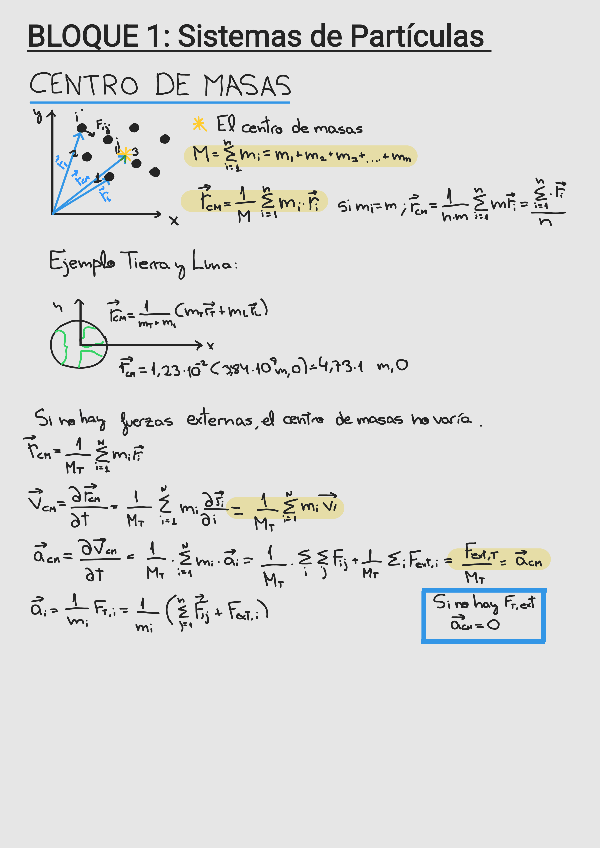 BLOQUE 1: Sistemas de Partículas
CENTRO DE MASAS
y
i
Fij
2
3
1
x
El centro de masas
M = Σ_{i=1}^{n} mi = m1 + m2 + m3 + .... + mn
r⃗CM = 1/M Σ_{i=1}^{n} mi · r⃗i
si mi = m ; r⃗CM = 1/(n·m) Σ_{i=1}^{n} m r⃗i = (Σ_{i=1}^{n} · r⃗i)/n
Ejemplo Tierra y Luna:
r⃗CM = 1/(mT + mL) (mT r⃗T + mL r⃗L)
x
r⃗CM = 1,23·10⁻²
Si no hay fuerzas externas, el centro de masas no varía.
r⃗CM = 1/MT Σ_{i=1}^{N} mi r⃗i
v⃗CM = ∂r⃗CM/∂t = 1/MT Σ_{i=1}^{N} mi ∂r⃗i/∂i = 1/MT Σ_{i=1}^{N} mi v⃗i
a⃗CM = ∂v⃗CM/∂t = 1/MT · Σ_{i=1}^{N} mi · a⃗i = 1/MT · Σ_i Σ_j Fij + 1/MT Σi Fext,i = Fext,T/MT = a⃗CM
a⃗i = 1/mi FT,i = 1/mi (Σ_{j=1}^{n} F⃗ij + Fext,i)
Si no hay FT,ext
a⃗CM = 0